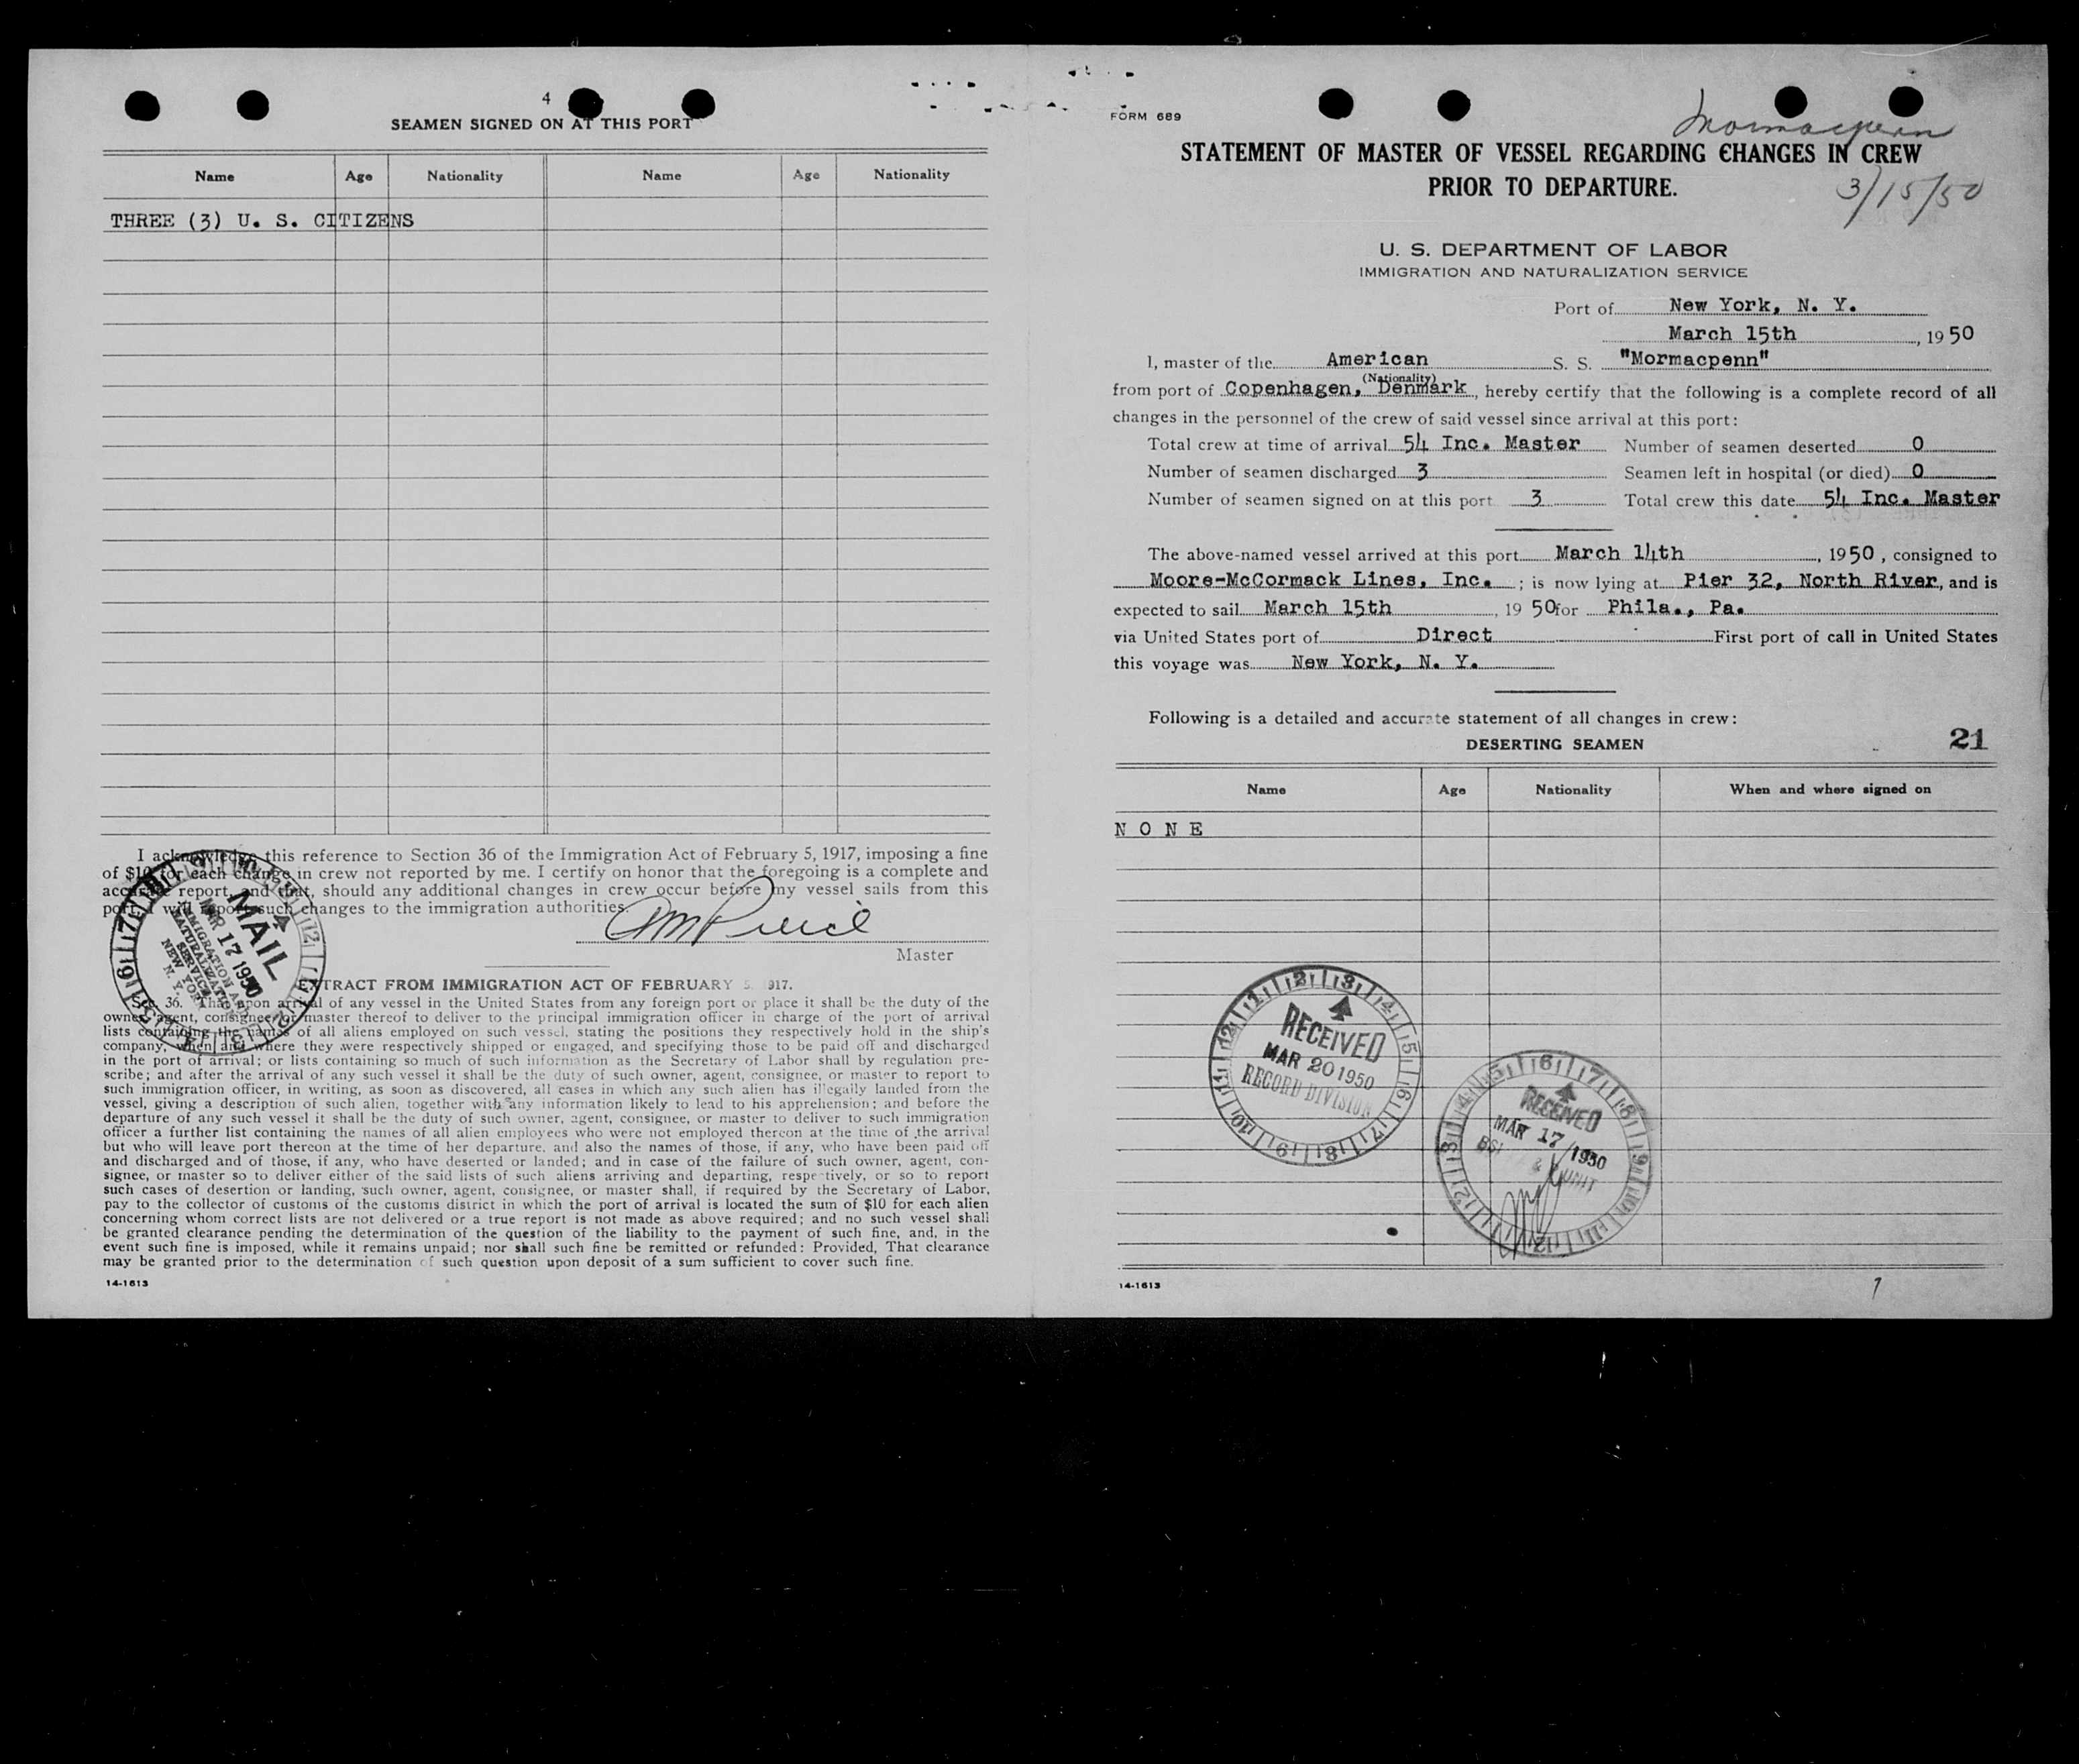 4
SEAMEN SIGNED ON AT THIS PORT
Name Age Nationality Name Age Nationality
THREE (3) U. S. CITIZENS
I acknowledge this reference to Section 36 of the Immigration Act of February 5, 1917, imposing a fine
of $10 for each change in crew not reported by me. I certify on honor that the foregoing is a complete and
accurate report, and that, should any additional changes in crew occur before my vessel sails from this
port, I will report such changes to the immigration authorities.
Master
MAIL
MAR 17 1950
IMMIGRATION AND
NATURALIZATION
SERVICE
NEW YORK
N. Y.
EXTRACT FROM IMMIGRATION ACT OF FEBRUARY 5, 1917.
Sec. 36. That upon arrival of any vessel in the United States from any foreign port or place it shall be the duty of the
owner, agent, consignee, or master thereof to deliver to the principal immigration officer in charge of the port of arrival
lists containing the names of all aliens employed on such vessel, stating the positions they respectively hold in the ship's
company, when and where they were respectively shipped or engaged, and specifying those to be paid off and discharged
in the port of arrival; or lists containing so much of such information as the Secretary of Labor shall by regulation pre-
scribe; and after the arrival of any such vessel it shall be the duty of such owner, agent, consignee, or master to report to
such immigration officer, in writing, as soon as discovered, all cases in which any such alien has illegally landed from the
vessel, giving a description of such alien, together with any information likely to lead to his apprehension; and before the
departure of any such vessel it shall be the duty of such owner, agent, consignee, or master to deliver to such immigration
officer a further list containing the names of all alien employees who were not employed thereon at the time of the arrival
but who will leave port thereon at the time of her departure, and also the names of those, if any, who have been paid off
and discharged and of those, if any, who have deserted or landed; and in case of the failure of such owner, agent, con-
signee, or master so to deliver either of the said lists of such aliens arriving and departing, respectively, or so to report
such cases of desertion or landing, such owner, agent, consignee, or master shall, if required by the Secretary of Labor,
pay to the collector of customs of the customs district in which the port of arrival is located the sum of $10 for each alien
concerning whom correct lists are not delivered or a true report is not made as above required; and no such vessel shall
be granted clearance pending the determination of the question of the liability to the payment of such fine, and, in the
event such fine is imposed, while it remains unpaid; nor shall such fine be remitted or refunded: Provided, That clearance
may be granted prior to the determination of such question upon deposit of a sum sufficient to cover such fine.
14-1613
FORM 689
Mormacpenn
STATEMENT OF MASTER OF VESSEL REGARDING CHANGES IN CREW
PRIOR TO DEPARTURE.
3/15/50
U. S. DEPARTMENT OF LABOR
IMMIGRATION AND NATURALIZATION SERVICE
Port of New York, N. Y.
March 15th, 1950
I, master of the American S. S. "Mormacpenn"
(Nationality)
from port of Copenhagen, Denmark, hereby certify that the following is a complete record of all
changes in the personnel of the crew of said vessel since arrival at this port:
Total crew at time of arrival 54 Inc. Master Number of seamen deserted 0
Number of seamen discharged 3 Seamen left in hospital (or died) 0
Number of seamen signed on at this port 3 Total crew this date 54 Inc. Master
The above-named vessel arrived at this port March 14th, 1950, consigned to
Moore-McCormack Lines, Inc.; is now lying at Pier 32, North River, and is
expected to sail March 15th, 1950 for Phila., Pa.
via United States port of Direct First port of call in United States
this voyage was New York, N. Y.
Following is a detailed and accurate statement of all changes in crew:
DESERTING SEAMEN
21
Name Age Nationality When and where signed on
N O N E
RECEIVED
MAR 20 1950
RECORD DIVISION
RECEIVED
MAR 17 1950
BSI & UNIT
14-1613